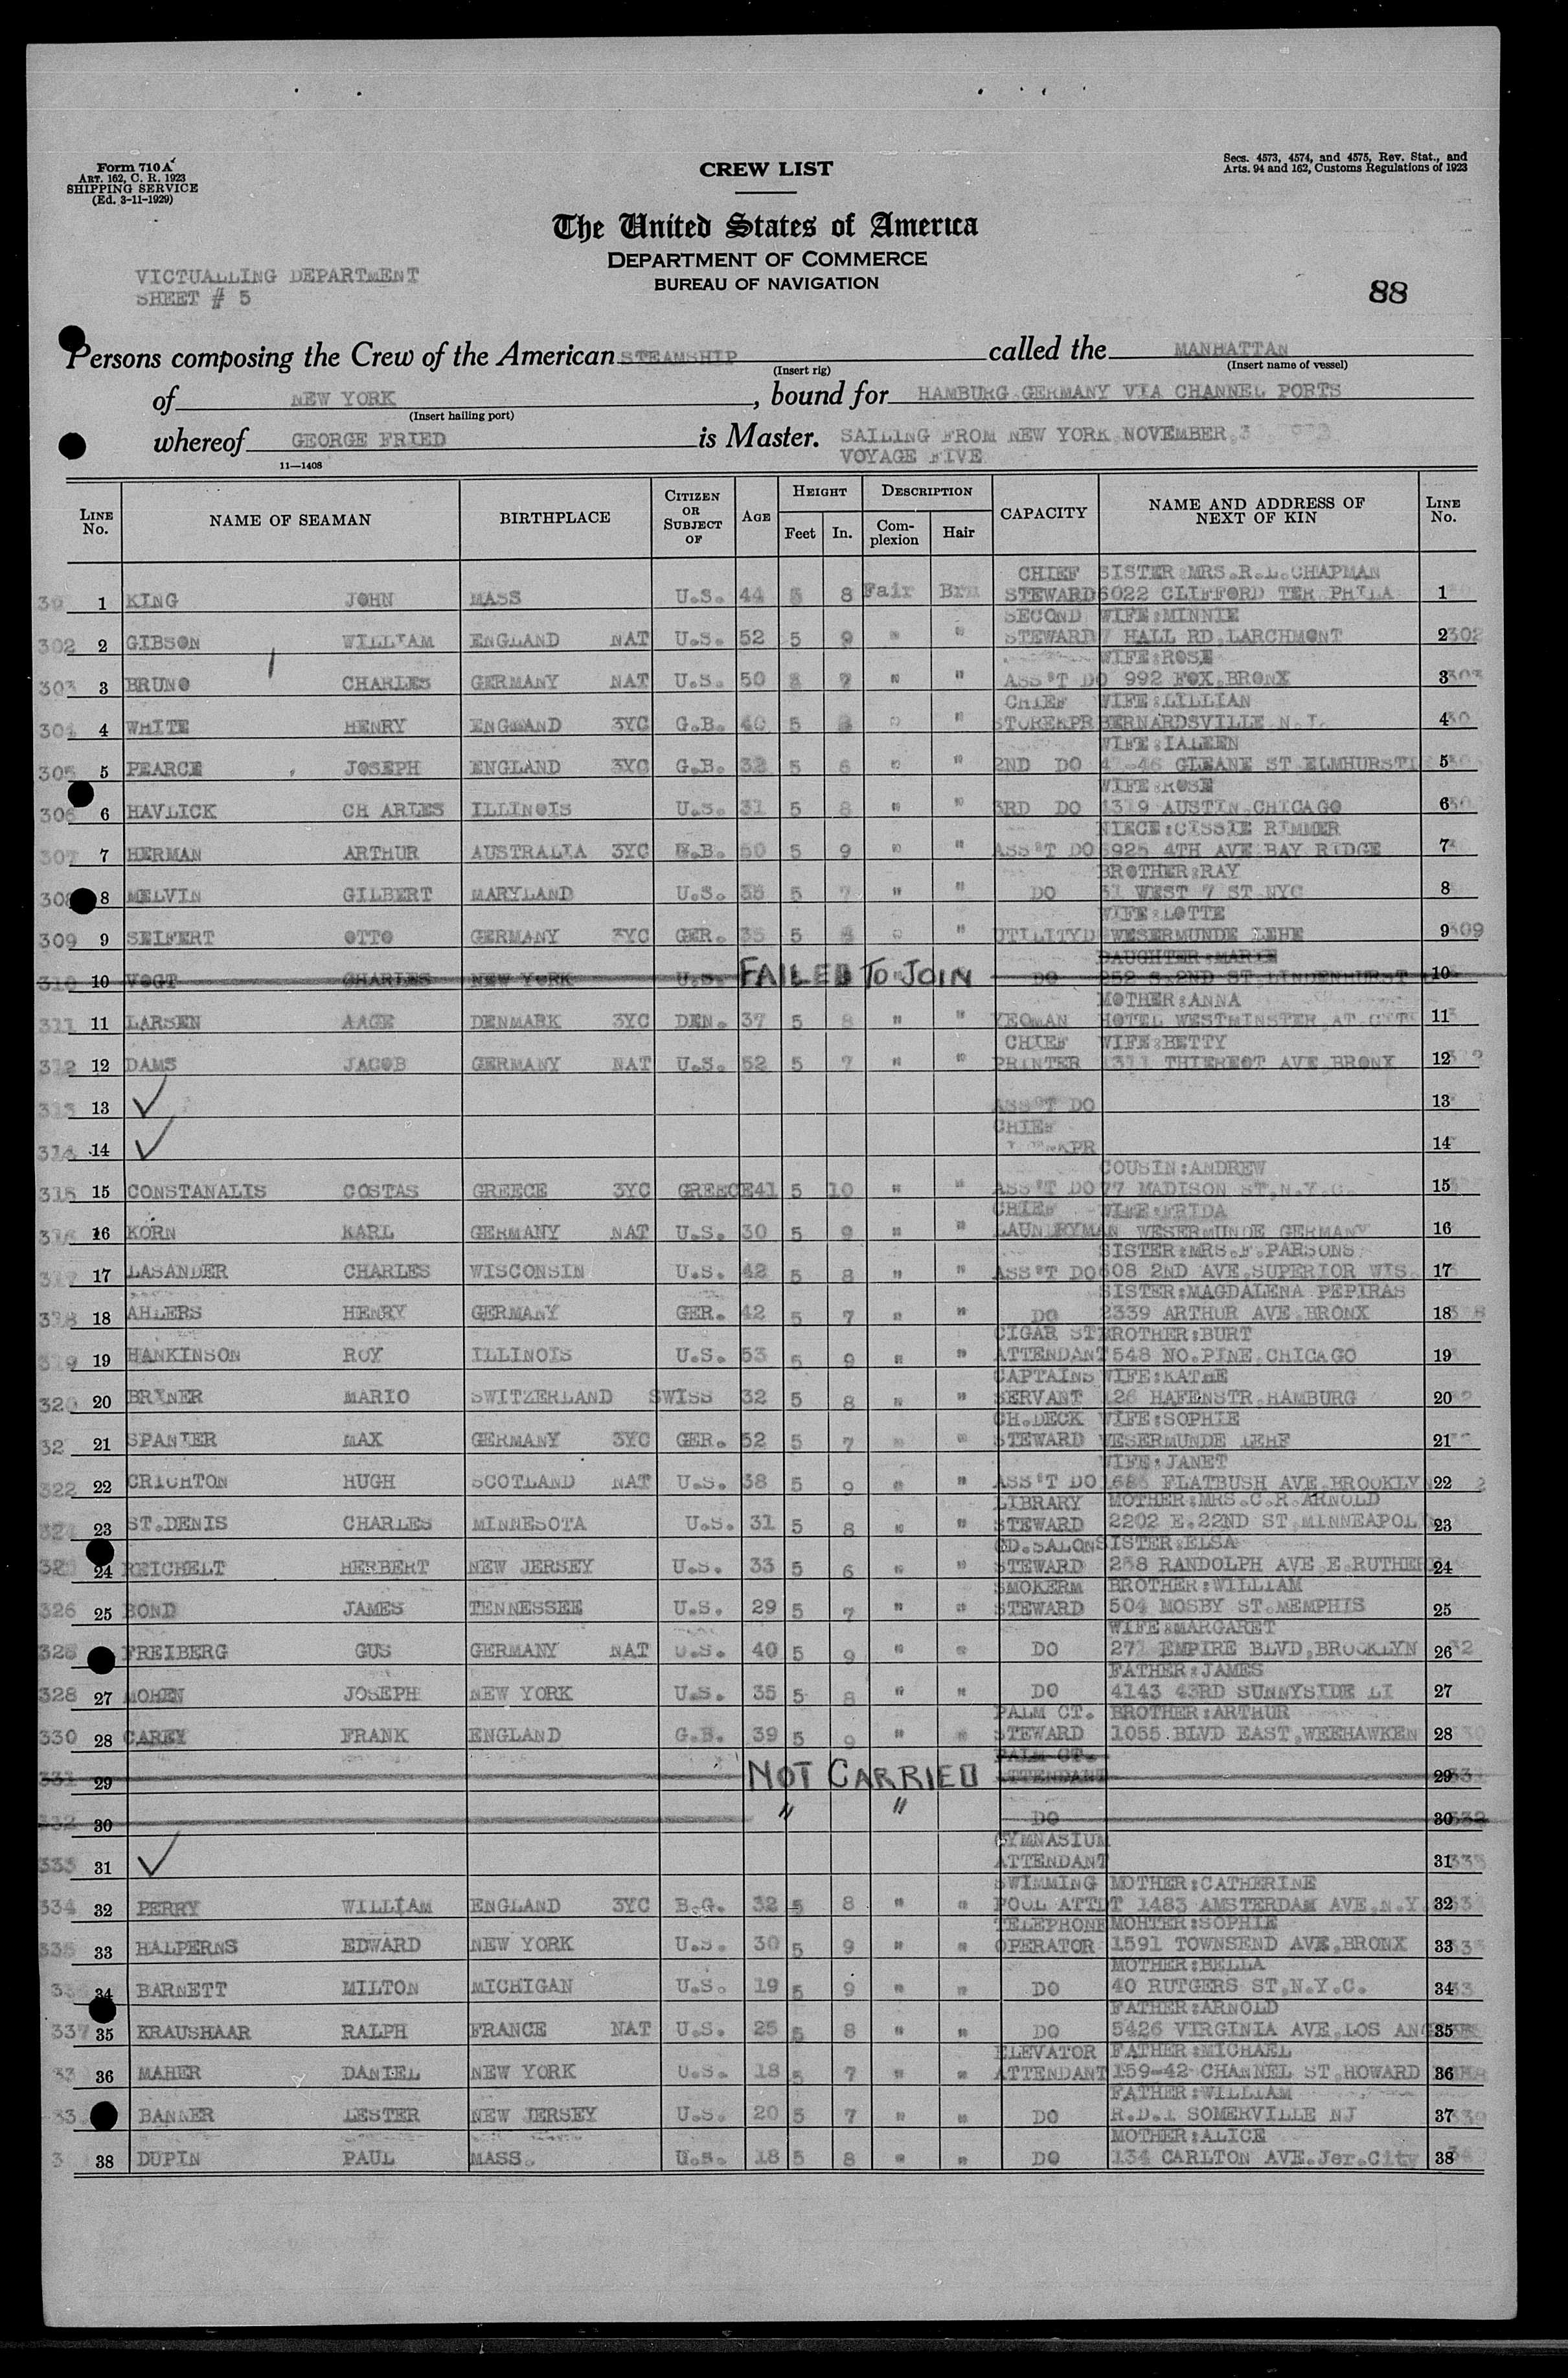 Form 710A
ART. 162, C. R. 1923
SHIPPING SERVICE
(Ed. 3-11-1929)
CREW LIST
Secs. 4573, 4574, and 4575, Rev. Stat., and
Arts. 94 and 162, Customs Regulations of 1923
The United States of America
DEPARTMENT OF COMMERCE
BUREAU OF NAVIGATION
VICTUALLING DEPARTMENT
SHEET # 5
88
Persons composing the Crew of the American STEAMSHIP called the MANHATTAN
(Insert rig) (Insert name of vessel)
of NEW YORK, bound for HAMBURG GERMANY VIA CHANNEL PORTS
(Insert hailing port)
whereof GEORGE FRIED is Master. SAILING FROM NEW YORK NOVEMBER
VOYAGE FIVE
11—1408
LINE No. NAME OF SEAMAN BIRTHPLACE CITIZEN OR SUBJECT OF AGE HEIGHT Feet In. DESCRIPTION Complexion Hair CAPACITY NAME AND ADDRESS OF NEXT OF KIN LINE No.
CHIEF SISTER:MRS.R.L.CHAPMAN
1 KING JOHN MASS U.S. 44 5 8 Fair Brn STEWARD 6022 CLIFFORD TER PHILA 1
SECOND WIFE:MINNIE
302 2 GIBSON WILLIAM ENGLAND NAT U.S. 52 5 9 " " STEWARD 7 HALL RD.LARCHMONT 2 302
WIFE:ROSE
303 3 BRUNO CHARLES GERMANY NAT U.S. 50 " " ASS'T DO 992 FOX.BRONX 3 303
CHIEF WIFE:LILLIAN
304 4 WHITE HENRY ENGLAND 3YC G.B. 40 5 " " STOREKPR BERNARDSVILLE N.J. 4
WIFE:IALEEN
305 5 PEARCE JOSEPH ENGLAND 3YC G.B. 32 5 6 " " 2ND DO GLEANE ST ELMHURST 5
WIFE:ROSE
306 6 HAVLICK CH ARLES ILLINOIS U.S. 31 5 8 " " 3RD DO 1319 AUSTIN.CHICAGO 6
NIECE:CISSIE RIMMER
307 7 HERMAN ARTHUR AUSTRALIA 3YC 50 5 9 " " ASS'T DO 5925 4TH AVE BAY RIDGE 7
BROTHER:RAY
8 MELVIN GILBERT MARYLAND U.S. 35 5 7 " " DO WEST 7 ST NYC 8
WIFE:LOTTE
309 9 SEIFERT OTTO GERMANY 3YC GER. 35 5 " " UTILITYD WESERMUNDE LEHE 9 309
DAUGHTER:MARIE
310 10 VOGT CHARLES NEW YORK U.S. FAILED TO JOIN DO 252 S.2ND ST.LINDENHURST 10
MOTHER:ANNA
311 11 LARSEN AAGE DENMARK 3YC DEN. 37 5 8 " " YEOMAN HOTEL WESTMINSTER AT CTY 11
CHIEF WIFE:BETTY
312 12 DAMS JACOB GERMANY NAT U.S. 52 5 7 " " PRINTER 1311 THIEREOT AVE.BRONX 12
313 13 ✓ ASS'T DO 13
CHIEF
314 14 ✓ 14
COUSIN:ANDREW
315 15 CONSTANALIS COSTAS GREECE 3YC GREECE 41 5 10 " " ASS'T DO 77 MADISON ST.N.Y.C. 15
CHIEF WIFE:FRIDA
316 16 KORN KARL GERMANY NAT U.S. 30 5 9 " " LAUNDRYMAN WESERMUNDE GERMANY 16
SISTER:MRS.F.PARSONS
317 17 LASANDER CHARLES WISCONSIN U.S. 42 5 8 " " ASS'T DO 608 2ND AVE.SUPERIOR WIS. 17
SISTER:MAGDALENA PEPIRAS
318 18 AHLERS HENRY GERMANY GER. 42 5 7 " " DO 2339 ARTHUR AVE.BRONX 18
CIGAR ST BROTHER:BURT
319 19 HANKINSON ROY ILLINOIS U.S. 53 5 9 " " ATTENDANT 548 NO.PINE.CHICAGO 19
CAPTAINS WIFE:KATHE
320 20 BRINER MARIO SWITZERLAND SWISS 32 5 8 " " SERVANT 126 HAFENSTR.HAMBURG 20
CH.DECK WIFE:SOPHIE
21 SPANIER MAX GERMANY 3YC GER. 52 5 7 " " STEWARD WESERMUNDE LEHE 21
WIFE:JANET
322 22 CRICHTON HUGH SCOTLAND NAT U.S. 38 5 9 " " ASS'T DO FLATBUSH AVE.BROOKLYN 22
LIBRARY MOTHER:MRS.C.R.ARNOLD
23 ST.DENIS CHARLES MINNESOTA U.S. 31 5 8 " " STEWARD 2202 E.22ND ST.MINNEAPOL 23
SISTER:ELSA
24 REICHELT HERBERT NEW JERSEY U.S. 33 5 6 " " STEWARD 258 RANDOLPH AVE.E.RUTHER 24
SMOKERM BROTHER:WILLIAM
326 25 BOND JAMES TENNESSEE U.S. 29 5 7 " " STEWARD 504 MOSBY ST.MEMPHIS 25
WIFE:MARGARET
FREIBERG GUS GERMANY NAT U.S. 40 5 9 " " DO EMPIRE BLVD.BROOKLYN 26
FATHER:JAMES
328 27 MOHEN JOSEPH NEW YORK U.S. 35 5 8 " " DO 4143 43RD SUNNYSIDE LI 27
PALM CT. BROTHER:ARTHUR
330 28 CAREY FRANK ENGLAND G.B. 39 5 9 " " STEWARD 1055 BLVD EAST.WEEHAWKEN 28
PALM CT.
331 29 NOT CARRIED ATTENDANT 29
332 30 " " DO 30 332
GYMNASIUM
333 31 ✓ ATTENDANT 31 333
SWIMMING MOTHER:CATHERINE
334 32 PERRY WILLIAM ENGLAND 3YC B.G. 32 5 8 " " POOL ATTDT 1483 AMSTERDAM AVE.N.Y. 32
TELEPHONE MOHTER:SOPHIE
335 33 HALPERNS EDWARD NEW YORK U.S. 30 5 9 " " OPERATOR 1591 TOWNSEND AVE.BRONX 33
MOTHER:BELLA
34 BARNETT MILTON MICHIGAN U.S. 19 5 9 " " DO 40 RUTGERS ST.N.Y.C. 34
FATHER:ARNOLD
337 35 KRAUSHAAR RALPH FRANCE NAT U.S. 25 5 8 " " DO 5426 VIRGINIA AVE.LOS 35
ELEVATOR FATHER:MICHAEL
36 MAHER DANIEL NEW YORK U.S. 18 5 7 " " ATTENDANT 159-42 CHANNEL ST.HOWARD 36
FATHER:WILLIAM
BANNER LESTER NEW JERSEY U.S. 20 5 7 " " DO R.D.1 SOMERVILLE NJ 37
MOTHER:ALICE
38 DUPIN PAUL MASS. U.S. 18 5 8 " " DO 134 CARLTON AVE.Jer.City 38